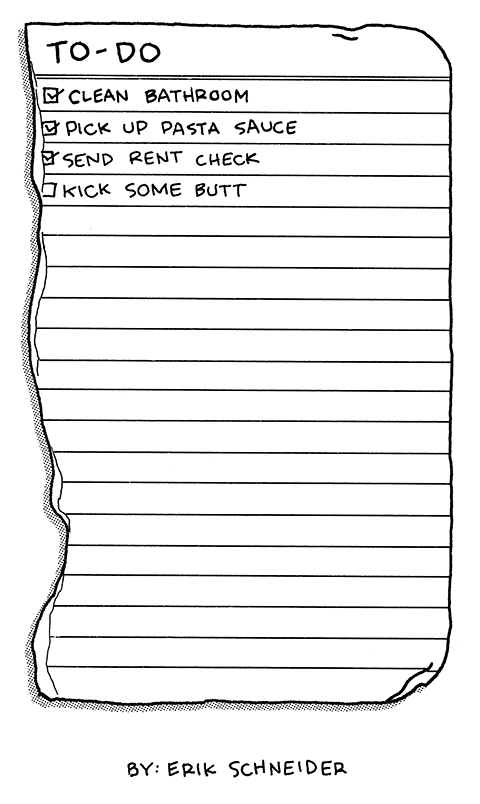 TO-DO
CLEAN BATHROOM
PICK UP PASTA SAUCE
SEND RENT CHECK
KICK SOME BUTT
BY: ERIK SCHNEIDER